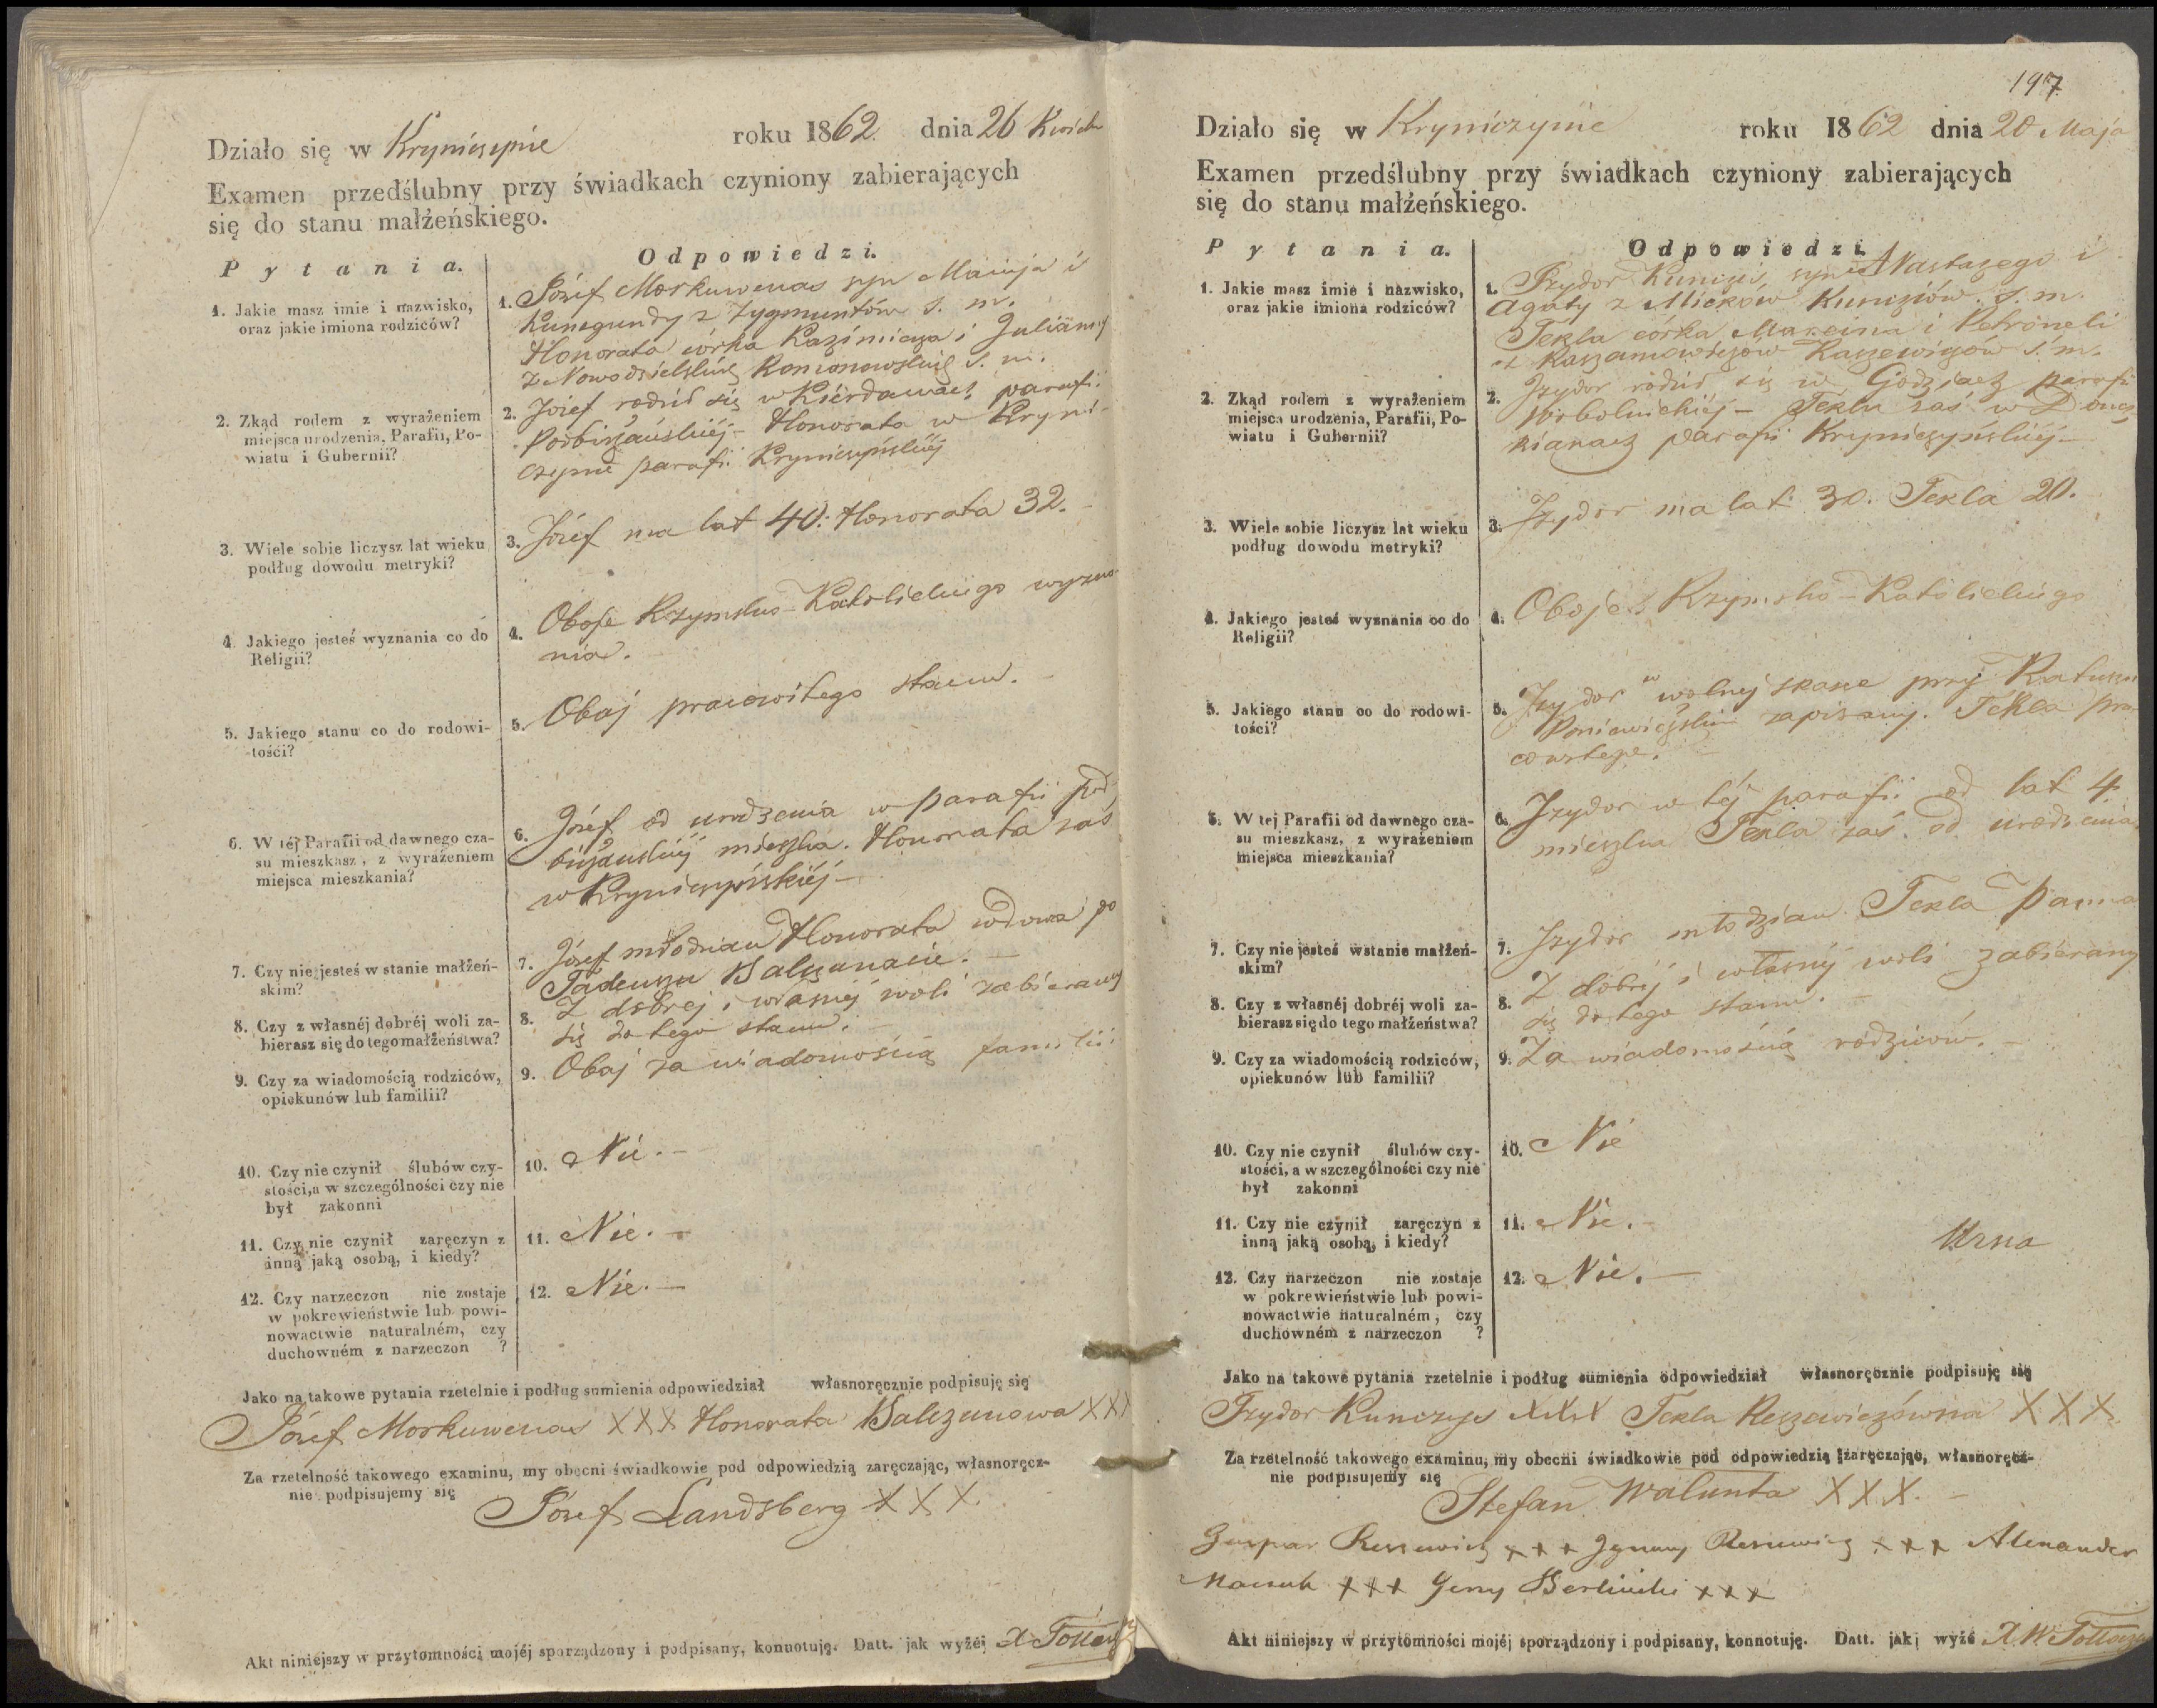 Działo się w Kryniczynie roku 1862 dnia 26 Kwiet
Examen przedślubny przy świadkach czyniony zabierających
się do stanu małżeńskiego.
Pytania.
Odpowiedzi.
1. Jakie masz imie i nazwisko,
oraz jakie imiona rodziców?
1. Józef Morkuwenas syn Macieja i
Kunegundy z Zygmuntów s. m.
Honorata córka Kazimierza i Julianny
z Nowodzielskich Romanowskich s. m.
2. Zkąd rodem z wyrażeniem
miejsca urodzenia, Parafii, Po-
wiatu i Gubernii?
2. Józef rodził się w Kierdawach parafii
Podbirżańskiéj – Honorata w Kryni-
czynie parafii Kryniczyńskiéj
3. Wiele sobie liczysz lat wieku
podług dowodu metryki?
3. Józef ma lat 40. Honorata 32.
4. Jakiego jesteś wyznania co do
Religii?
4. Oboje Rzymsko-Katolickiego wyzna-
nia.
5. Jakiego stanu co do rodowi-
tości?
5. Obaj pracowitego stanu.
6. W téj Parafii od dawnego cza-
su mieszkasz, z wyrażeniem
miejsca mieszkania?
6. Józef od urodzenia w parafii pod-
birżańskiéj mieszka. Honorata zaś
w Kryniczyńskiéj –
7. Czy nie jesteś w stanie małżeń-
skim?
7. Józef młodzian Honorata wdowa po
Tadeuszu Balczunasie. –
8. Czy z własnéj dobréj woli za-
bierasz się do tego małżeństwa?
8. Z dobrej i własnéj woli zabieramy
się do tego stanu. –
9. Czy za wiadomością rodziców,
opiekunów lub familii?
9. Obaj za wiadomością familii.
10. Czy nie czynił ślubów czy-
stości, a w szczególności czy nie
był zakonni
10. Nie. –
11. Czy nie czynił zaręczyn z
inną jaką osobą, i kiedy?
11. Nie. –
12. Czy narzeczon nie zostaje
w pokrewieństwie lub powi-
nowactwie naturalném, czy
duchowném z narzeczon ?
12. Nie. –
Jako na takowe pytania rzetelnie i podług sumienia odpowiedział własnoręcznie podpisuję się
Józef Morkuwenas XXX Honorata Balczunowa XXX
Za rzetelność takowego examinu, my obecni świadkowie pod odpowiedzią zaręczając, własnoręcz-
nie podpisujemy się
Józef Landsberg XXX.
Akt niniejszy w przytomności mojéj sporządzony i podpisany, konnotuję. Datt. jak wyżéj
197
Działo się w Kryniczynie roku 1862 dnia 20 Maja
Examen przedślubny przy świadkach czyniony zabierających
się do stanu małżeńskiego.
Pytania.
Odpowiedzi.
1. Jakie masz imie i nazwisko,
oraz jakie imiona rodziców?
1. Izydor Kunczis syn Anastazego i
Agaty z Micków Kuncziów. s. m.
Tekla córka Marcina i Petroneli
z Kaszamowiczów s. m.
2. Zkąd rodem z wyrażeniem
miejsca urodzenia, Parafii, Po-
wiatu i Gubernii?
2. Izydor rodził się w Godziach parafii
Wobolnickiéj – Tekla zaś w
parafii Kryniczyńskiéj –
3. Wiele sobie liczysz lat wieku
podług dowodu metryki?
3. Izydor ma lat 30. Tekla 20.
4. Jakiego jesteś wyznania co do
Religii?
4. Oboje Rzymsko-Katolickiego
5. Jakiego stanu co do rodowi-
tości?
5. Izydor w wolnej skasce przy Ratuszu
Poniewiezskim zapisany. Tekla pra-
cowitego. –
6. W tej Parafii od dawnego cza-
su mieszkasz, z wyrażeniem
miejsca mieszkania?
6. Izydor w téj parafii od lat 4
mieszka Tekla zaś od urodzenia
7. Czy nie jesteś wstanie małżeń-
skim?
7. Izydor młodzian Tekla panna
8. Czy z własnéj dobréj woli za-
bierasz się do tego małżeństwa?
8. Z dobréj i własnéj woli zabieramy
się do tego stanu. –
9. Czy za wiadomością rodziców,
opiekunów lub familii?
9. Za wiadomością rodziców. –
10. Czy nie czynił ślubów czy-
stości, a w szczególności czy nie
był zakonni
10. Nie
11. Czy nie czynił zaręczyn z
inną jaką osobą, i kiedy?
11. Nie. –
12. Czy narzeczon nie zostaje
w pokrewieństwie lub powi-
nowactwie naturalném, czy
duchowném z narzeczon ?
12. Nie. –
Jako na takowe pytania rzetelnie i podług sumienia odpowiedział własnoręcznie podpisuję się
Izydor Kunczys XXX Tekla Reszewiczówna XXX.
Za rzetelność takowego examinu, my obecni świadkowie pod odpowiedzią zaręczając, własnoręcz-
nie podpisujemy się
Stefan Walunta XXX. –
Gaspar Reszewicz +++ Ignacy Reszewicz +++ Alexander
+++ Jerzy Berlinski +++
Akt niniejszy w przytomności mojéj sporządzony i podpisany, konnotuję. Datt. jak wyżé